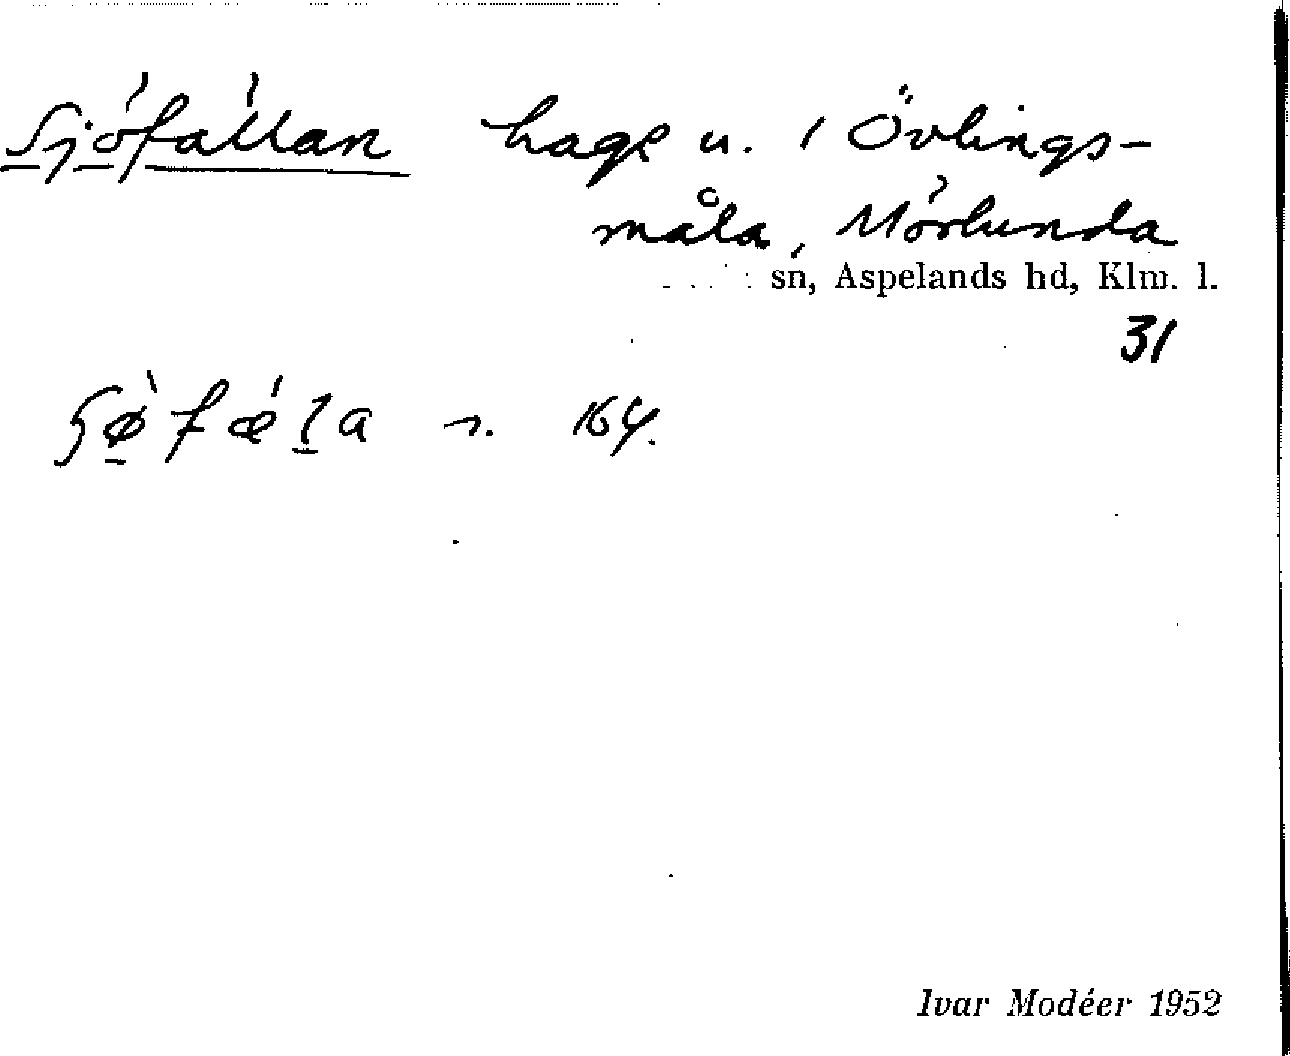 Sjöfällan hage u. / Övlings-
måla, Mörlunda
sn, Aspelands hd, Klm. l.
31
n. 164.
Ivar Modéer 1952